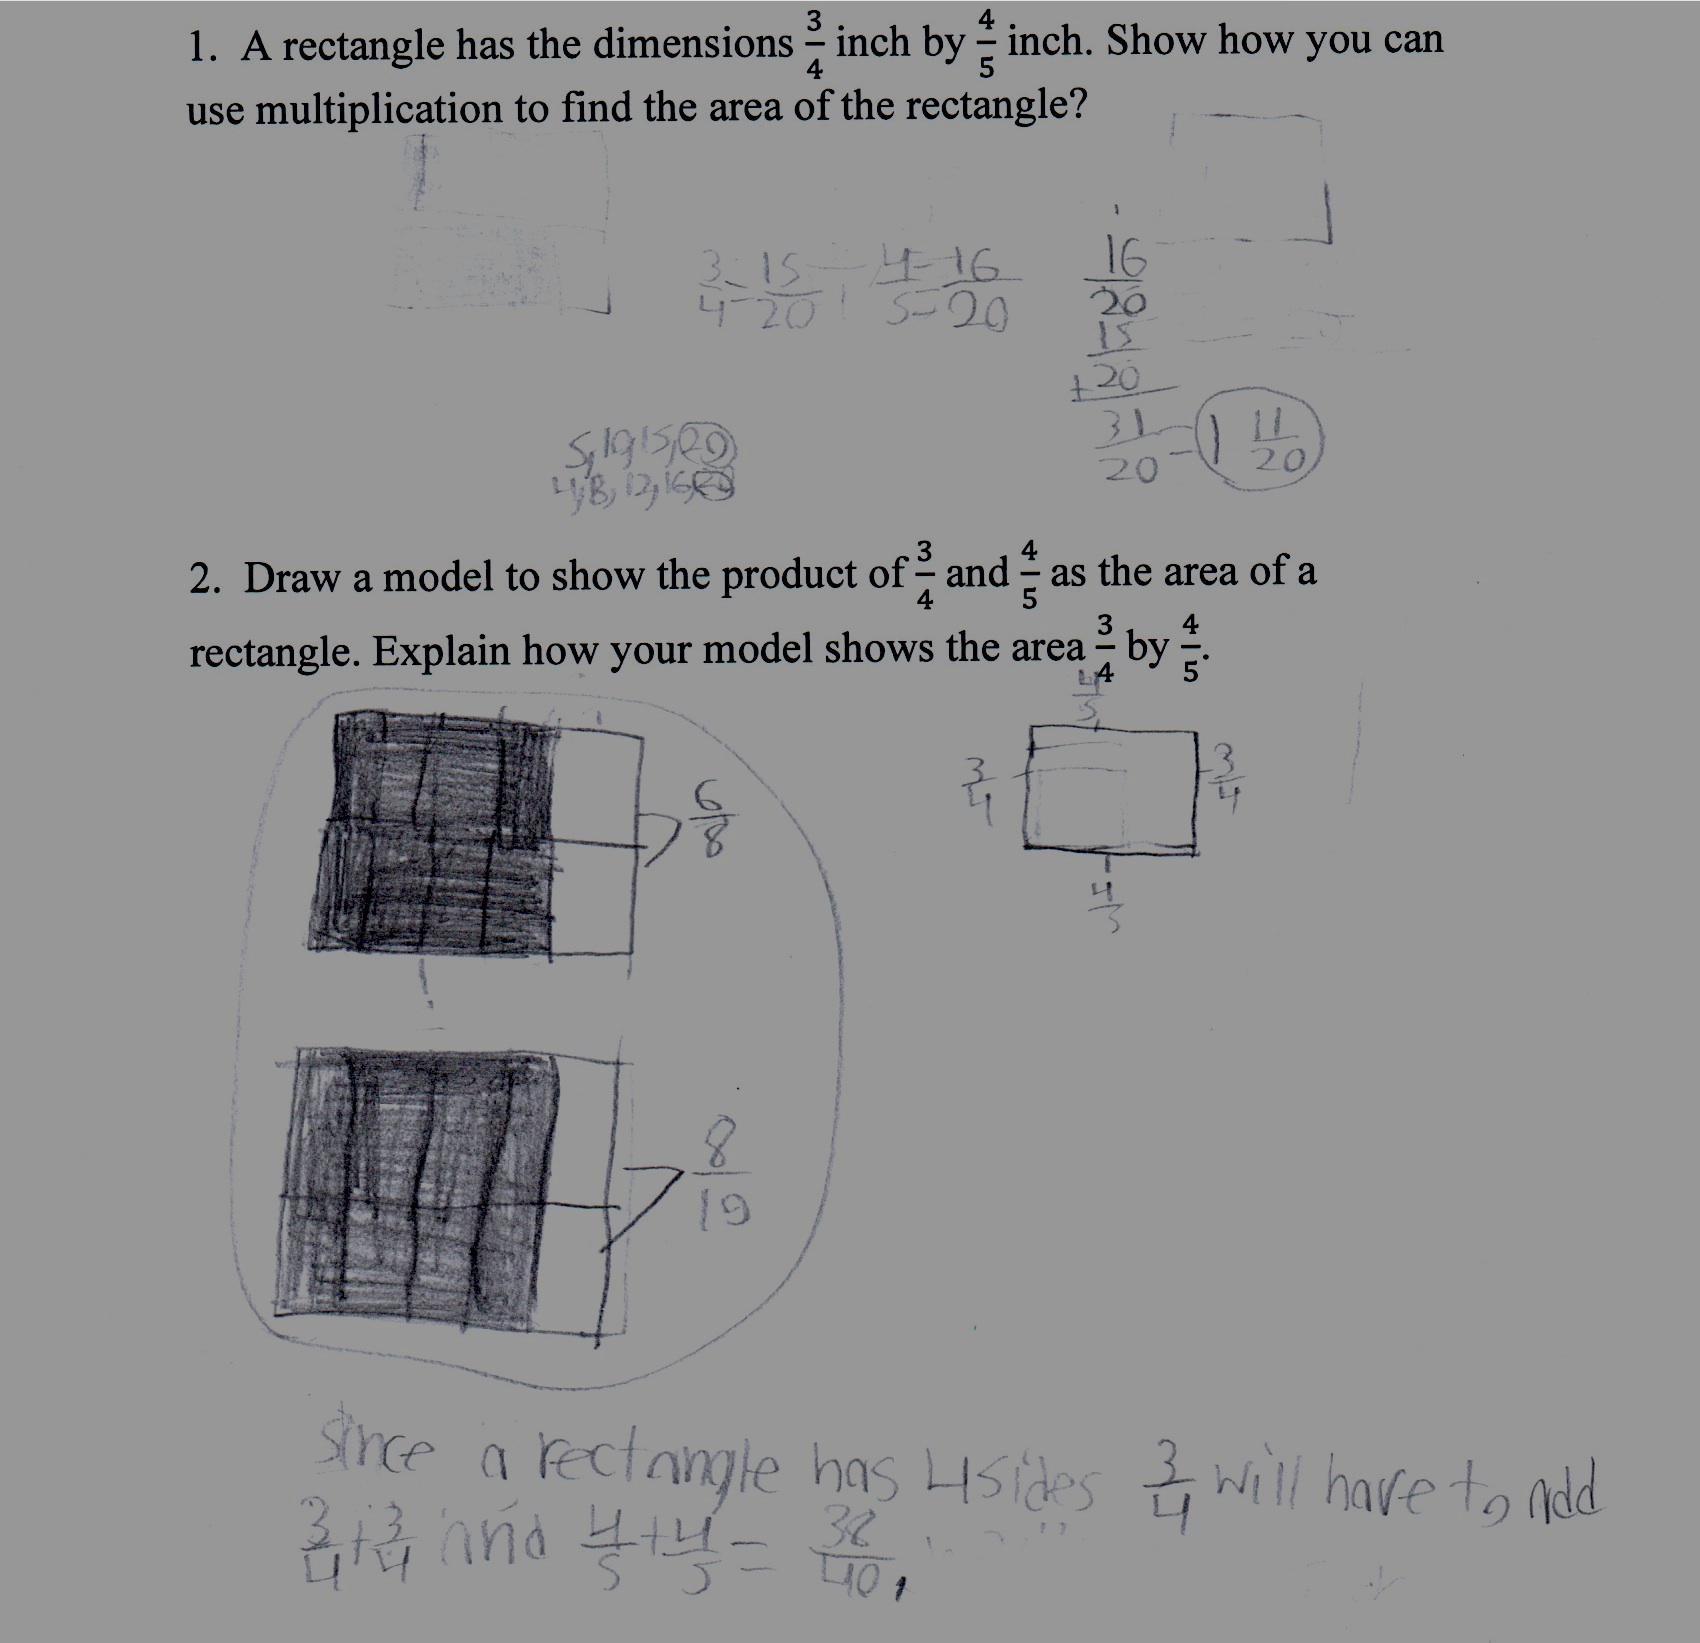 1. A rectangle has the dimensions 3/4 inch by 4/5 inch. Show how you can
use multiplication to find the area of the rectangle?
3/4 = 15/20 4/5 = 16/20
1
16/20
15/20
+
31/20 = 1 11/20
5, 10, 15, 20
4, 8, 12, 16, 20
2. Draw a model to show the product of 3/4 and 4/5 as the area of a
rectangle. Explain how your model shows the area 3/4 by 4/5.
6/8
4/5
3/4 3/4
4/5
8/10
Since a rectangle has 4 sides 3/4 will have to add
3/4 + 3/4 and 4/5 + 4/5 = 38/40,